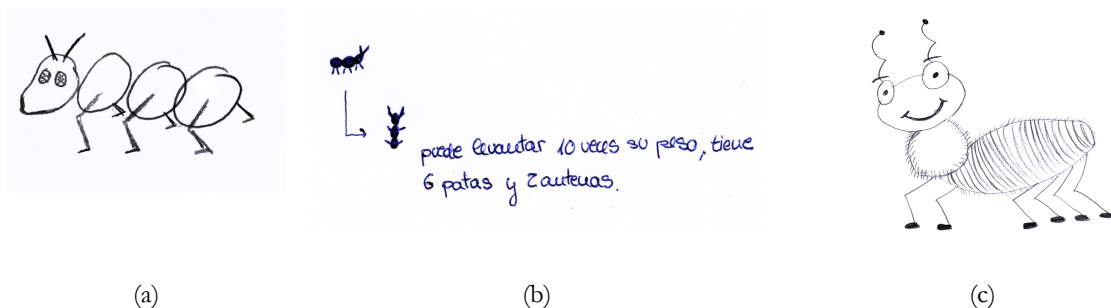 puede levantar 10 veces su peso, tiene
6 patas y 2 antenas.
(a)
(b)
(c)